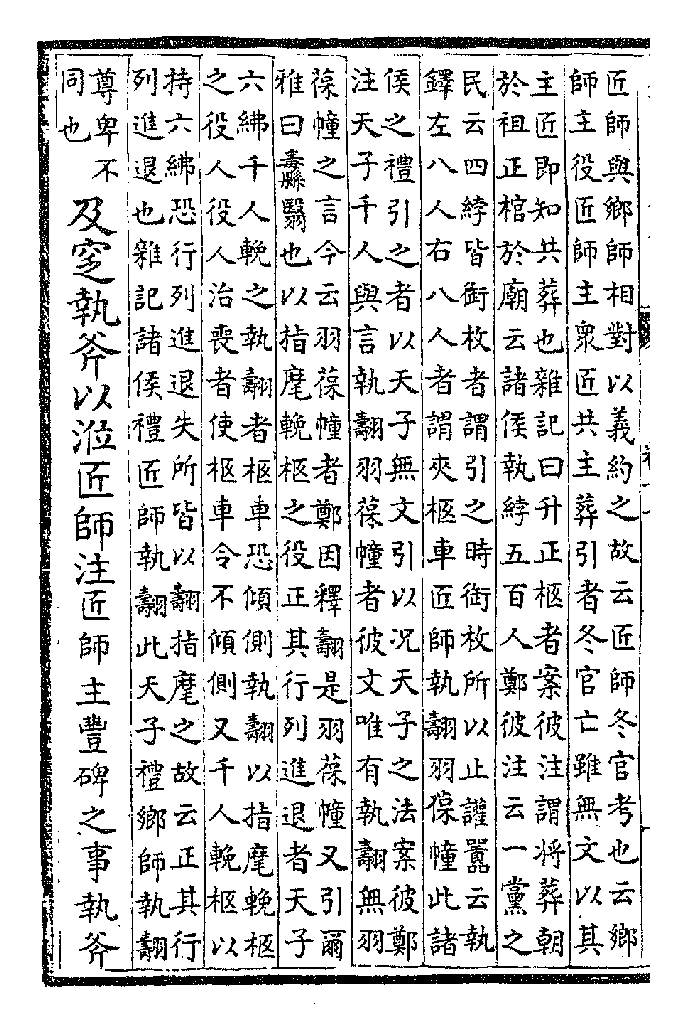 匠師與鄉師相對以義約之故云匠師冬官考也云鄉
師主役匠師主衆匠共主葬引者冬官亡雖無文以其
主匠即知共葬也雜記曰升正柩者案彼注謂將葬朝
於祖正棺於廟云諸侯執綍五百人鄭彼注云一黨之
民云四綍皆銜枚者謂引之時銜枚所以止讙嚻云執
鐸左八人右八人者謂夾柩車匠師執翿羽葆幢此諸
侯之禮引之者以天子無文引以況天子之法案彼鄭
注天子千人與言執翿羽葆幢者彼文唯有執翿無羽
葆幢之言今云羽葆幢者鄭因釋翿是羽葆幢又引爾
雅曰纛翳也以指麾輓柩之役正其行列進退者天子
六紼千人輓之執翿者柩車恐傾側執翿以指麾輓柩
之役人役人治喪者使柩車令不傾側又千人輓柩以
持六紼恐行列進退失所皆以翿指麾之故云正其行
列進退也雜記諸侯禮匠師執翿此天子禮鄉師執翿
尊卑不
同也
及窆執斧以涖匠師注匠師主豐碑之事執斧